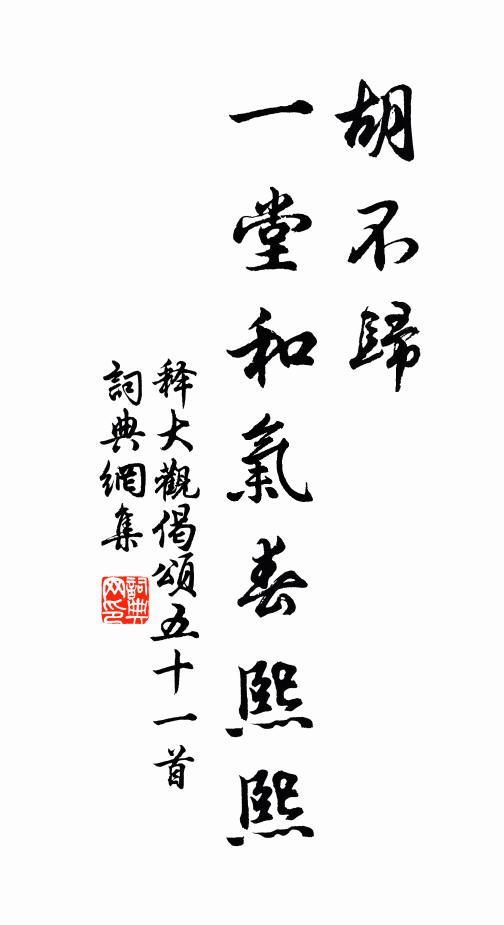 胡不歸
一堂和氣春熙熙
释大觀偈頌五十一首
詞典網集
詞典
网印